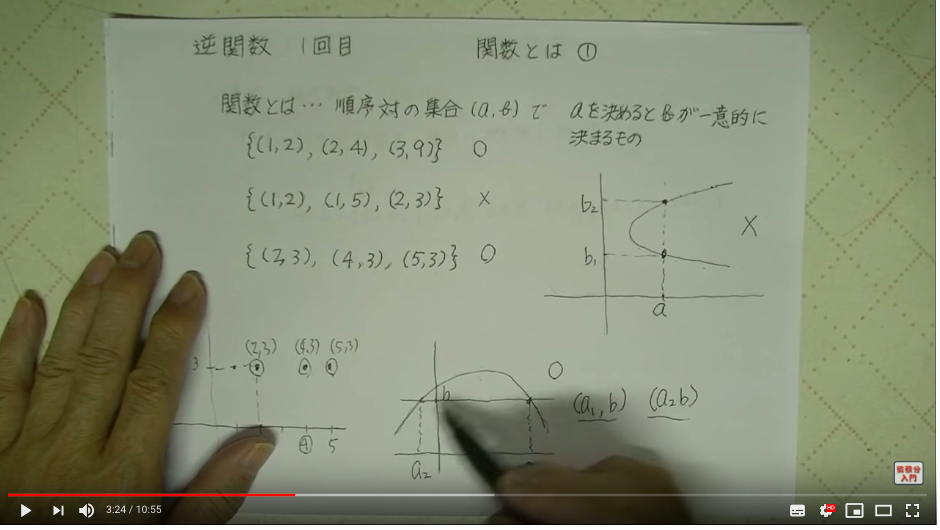 逆関数 1回目 関数とは ①
関数とは… 順序対の集合 (a, b) で aを決めるとbが一意的に
決まるもの
{(1,2), (2,4), (3,9)} ○
{(1,2), (1,5), (2,3)} ×
{(2,3), (4,3), (5,3)} ○
b₂
b₁
a
×
(2,3) (4,3) (5,3)
3
④ 5
b
a₂
○
(a₁, b) (a₂ b)
微積分
入門
3:24 / 10:55
HD